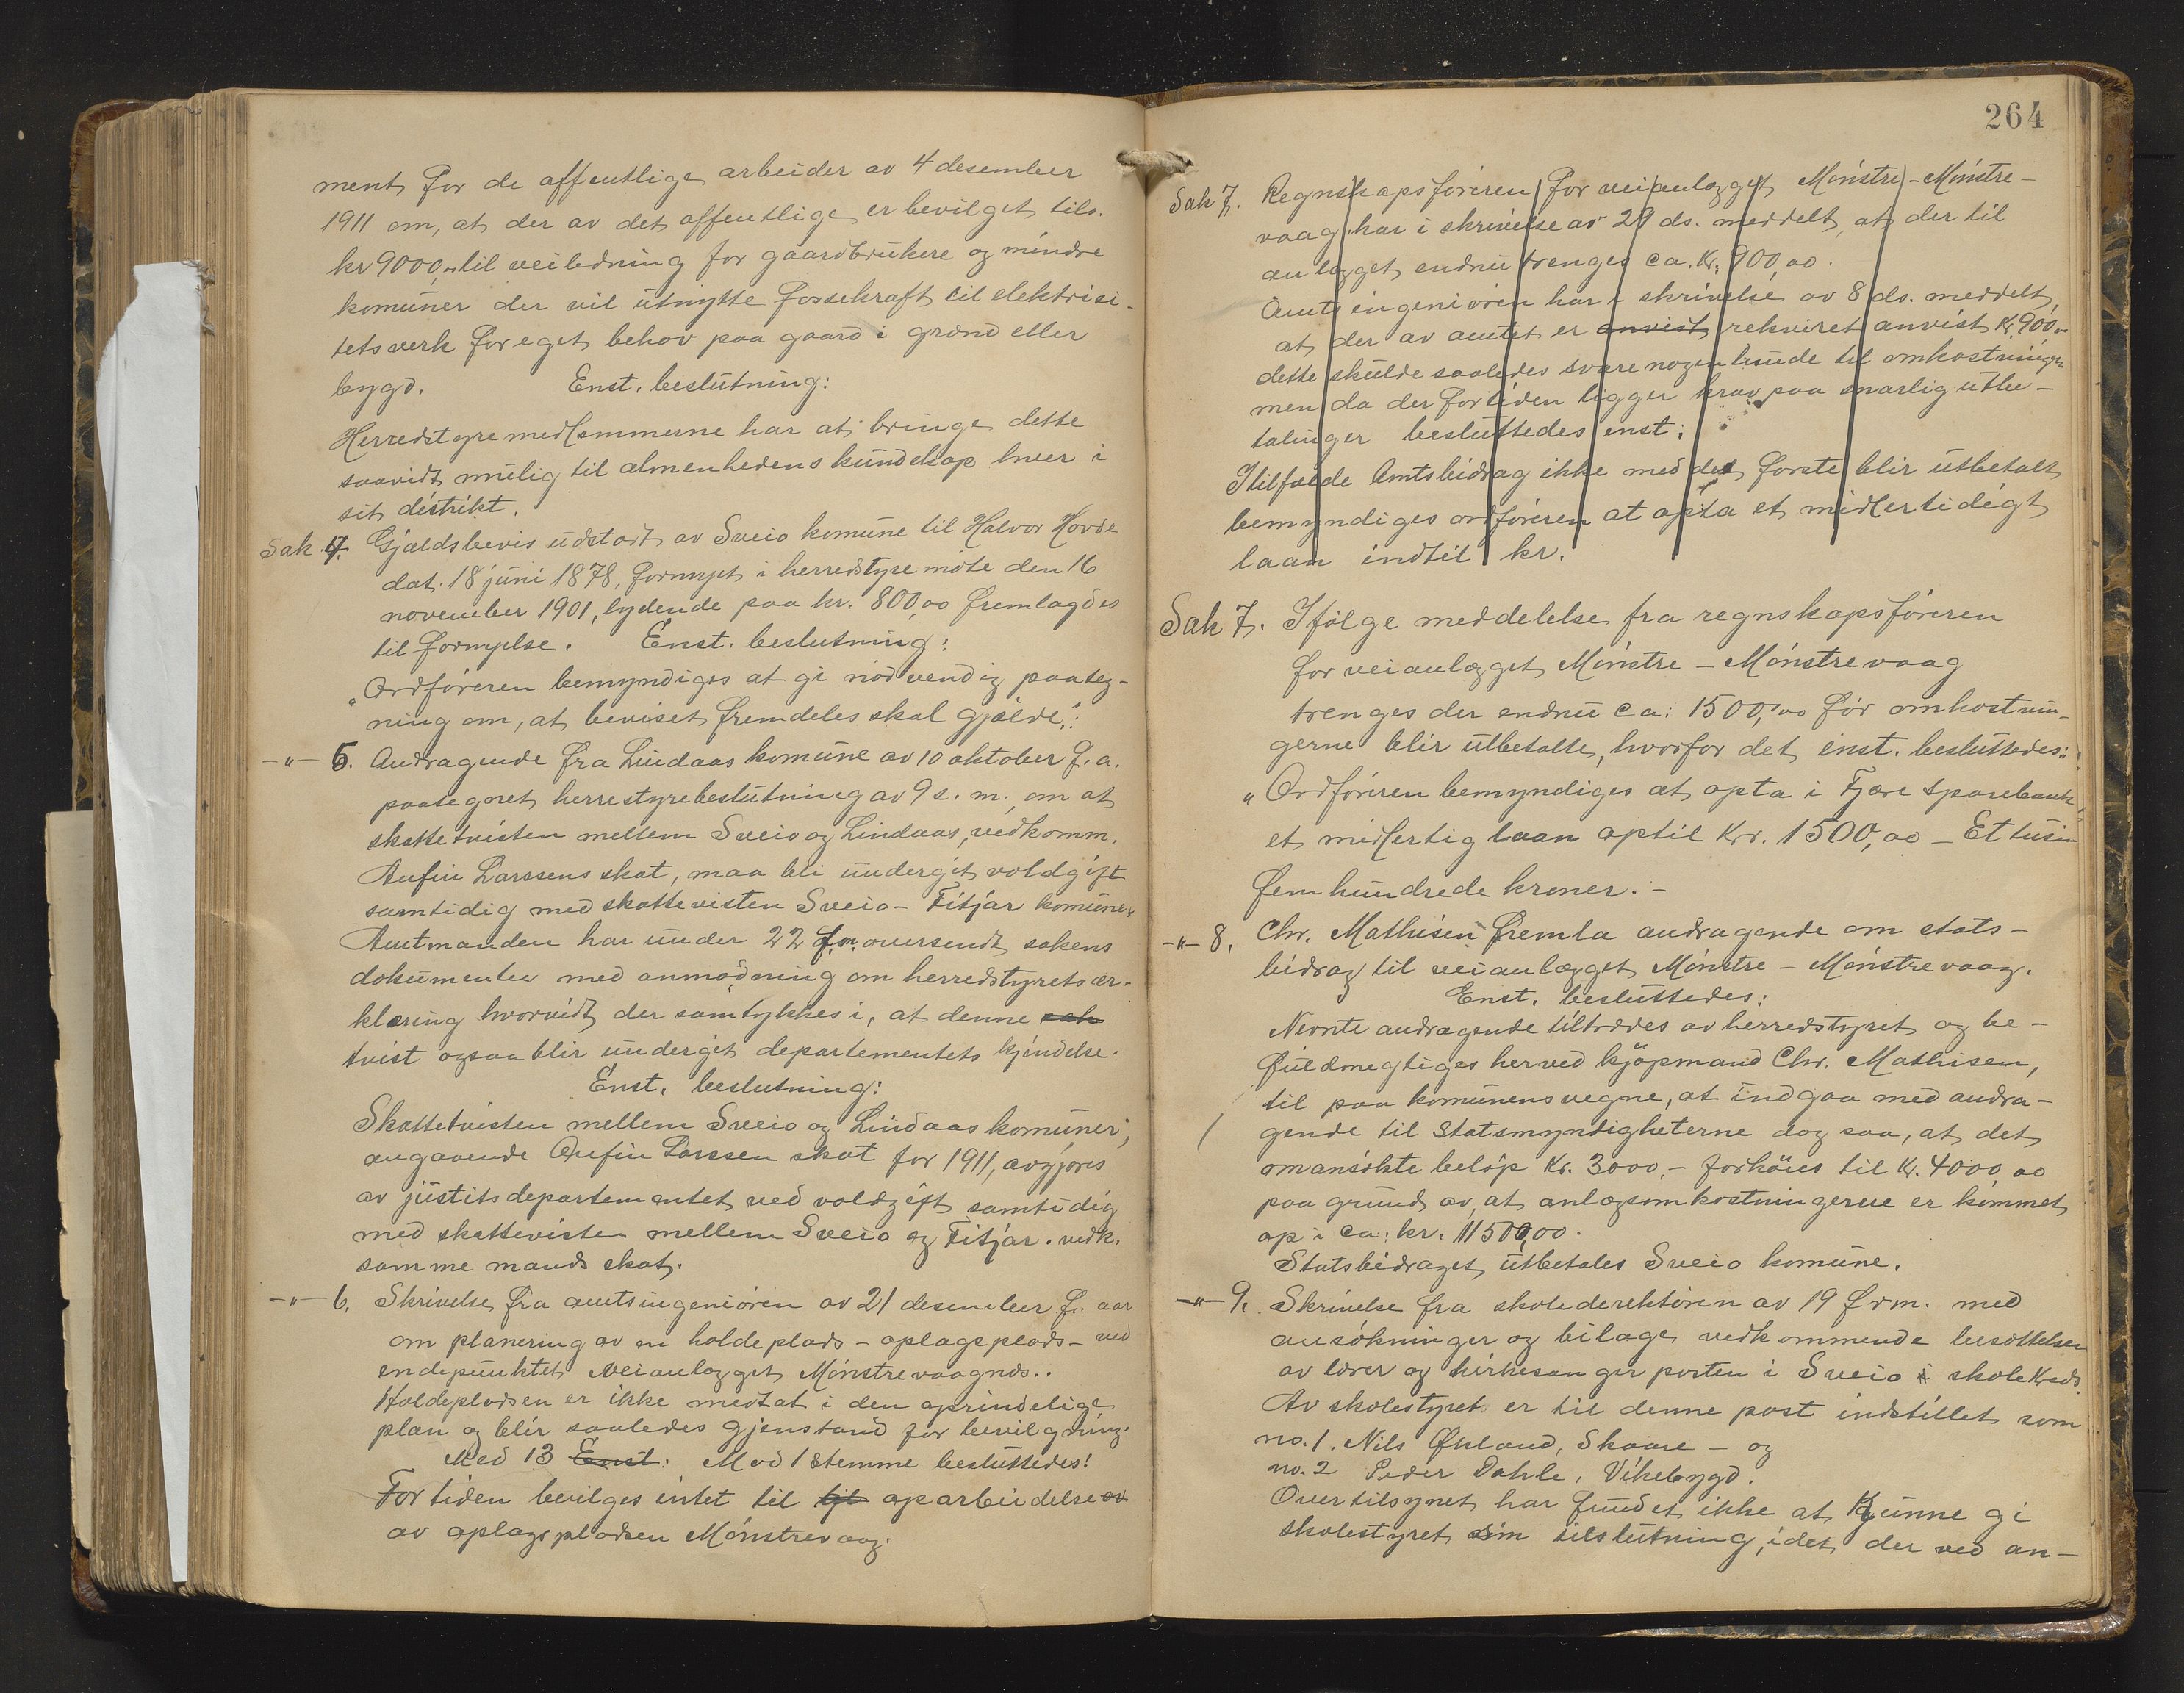 ment for de offentlige arbeider av 4 desember
1911 om, at der av det offentlige er bevilget tils.
kr 9000,- til veiledning for gaardbrukere og mindre
komuner der vil utnytte fossekraft til elektrisi-
tetsverk for eget behov paa gaard i grænd eller
bygd. Enst. beslutning:
Herredstyremedlemmerne har at bringe dette
saavidt mulig til almenhedens kundskap hver i
sit distrikt.
Sak 4. Gjældsbevis udstædt av Sveio komune til Halvor Hovde
dat. 18 juni 1878, fornyet i herredstyremøte den 16
november 1901, lydende paa kr. 800,00 fremlagdes
til fornyelse. Enst. beslutning:
"Ordføreren bemyndiges at gi nødvendig paateg-
ning om, at beviset fremdeles skal gjælde".
-"- 5. Andragende fra Lindaas komune av 10 oktober f. a.
paategnet herrestyrebeslutning av 9 s. m., om at
skattetvisten mellem Sveio og Lindaas, vedkomm.
Anfin Larssens skat, maa bli undergit voldgift
samtidig med skattevisten Sveio - Fitjar komuner.
Amtmanden har under 22 f.m. oversendt sakens
dokumenter med anmodning om herredstyrets er-
klæring hvorvidt der samtykkes i, at denne sak
tvist ogsaa blir undergit departementets kjendelse.
Enst. beslutning:
Skattetvisten mellem Sveio og Lindaas komuner,
angaaende Anfin Larssen skat for 1911, avgjøres
av justitsdepartementet ved voldgift samtidig
med skattevisten mellem Sveio og Fitjar. vedk.
samme mands skat.
-"- 6. Skrivelse fra amtsingeniøren av 21 desember f. aar
om planering av en holdeplads - oplagsplads - ved
endepunktet veianlægget Mønstrevaagnes..
Holdepladsen er ikke medtat i den oprindelige
plan og blir saaledes gjenstand for bevilgning.
Med 13 Enst: Mod 1 stemme besluttedes:
For tiden bevilges intet til til oparbeidelse av
av oplagspladsen Mønstrevaag.
264
Sak 7. Regnskapsføreren for veianlægget Mønstre - Mønstre-
vaag har i skrivelse av 29 ds. meddelt, at der til
anlægget endnu trenges ca. Kr. 900,00.
Amtsingeniøren har i skrivelse av 8 ds. meddelt,
at der av amtet er anvist rekviret anvist Kr. 900,-
dette skulde saaledes svare nogenlunde til omkostningen
men da der for tiden ligger krav paa snarlig utbe-
talinger besluttedes enst:
I tilfælde Amtsbidrag ikke med det første blir utbetalt
bemyndiges ordføreren at opta et midlertidigt
laan indtil kr.
Sak 7. Ifølge meddelelse fra regnskapsføreren
for veianlægget Mønstre - Mønstrevaag
trenges der endnu ca: 1500,00 før omkostnin-
gerne blir utbetalte, hvorfor det enst. besluttedes:
"Ordføreren bemyndiges at opta i Fjære Sparebank
et midlertig laan optil Kr. 1500,00 - Et tusin
femhundrede kroner. -
-"- 8. Chr. Mathisen fremla andragende om stats-
bidrag til veianlægget Mønstre - Mønstrevaag.
Enst. besluttedes:
Nevnte andragende tiltrædes av herredstyret og be-
fuldmegtiges herved kjøpmand Chr. Mathisen,
til paa komunens vegne, at indgaa med andra-
gende til statsmyndigheterne dog saa, at det
omansøkte beløp Kr. 3000,- forhøies til Kr. 4000,00
paa grund av, at anlægsomkostningerne er kommet
op i ca: kr. 11500,00.
Statsbidraget utbetales Sveio komune.
-"- 9. Skrivelse fra skolederektøren av 19 f.m. med
ansøkninger og bilage vedkommende besættelsen
av lærer og kirkesanger posten i Sveio skolekreds.
Av skolestyret er til denne post indstillet som
no. 1. Nils Økland, Skaare - og
no. 2 Peder Dahle, Vikebygd.
Overtilsynet har fundet ikke at kunne gi
skolestyret sin tilslutning, idet der ved an-